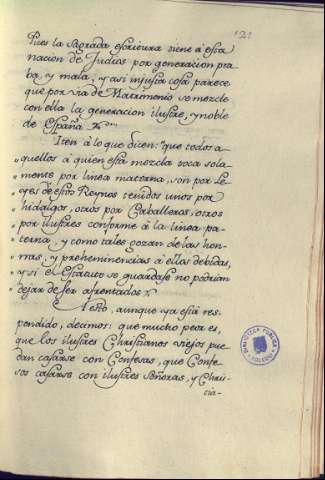 121
Pues la Sagrada escritura tiene à esta
nacion de Judios por generacion pra-
ba, y mala; y asi injusta cosa parece
que por via de Matrimonio se mezcle
con ella la generacion ilustre, y noble
de España &.
Iten à lo que dicen: que todos a-
quellos à quien esta mezcla toca sola-
mente por linea materna, son por Le-
yes de estos Reynos tenidos unos por
hidalgos, otros por Caballeros, otros
por ilustres conforme à la linea pa-
terna, y como tales gozan de las hon-
rras, y preheminencias à ellas debidas,
y si el Estatuto se guardase no podrian
dejar de ser afrentados &.
A esto, aunque ya està res-
pondido, decimos: que mucho peor es,
que los ilustres Christianos viejos pue-
dan casarse con Confesas, que Confe-
sos casarse con ilustres Señoras, y Chris-
cia-
BIBLIOTECA PUBLICA
TOLEDO